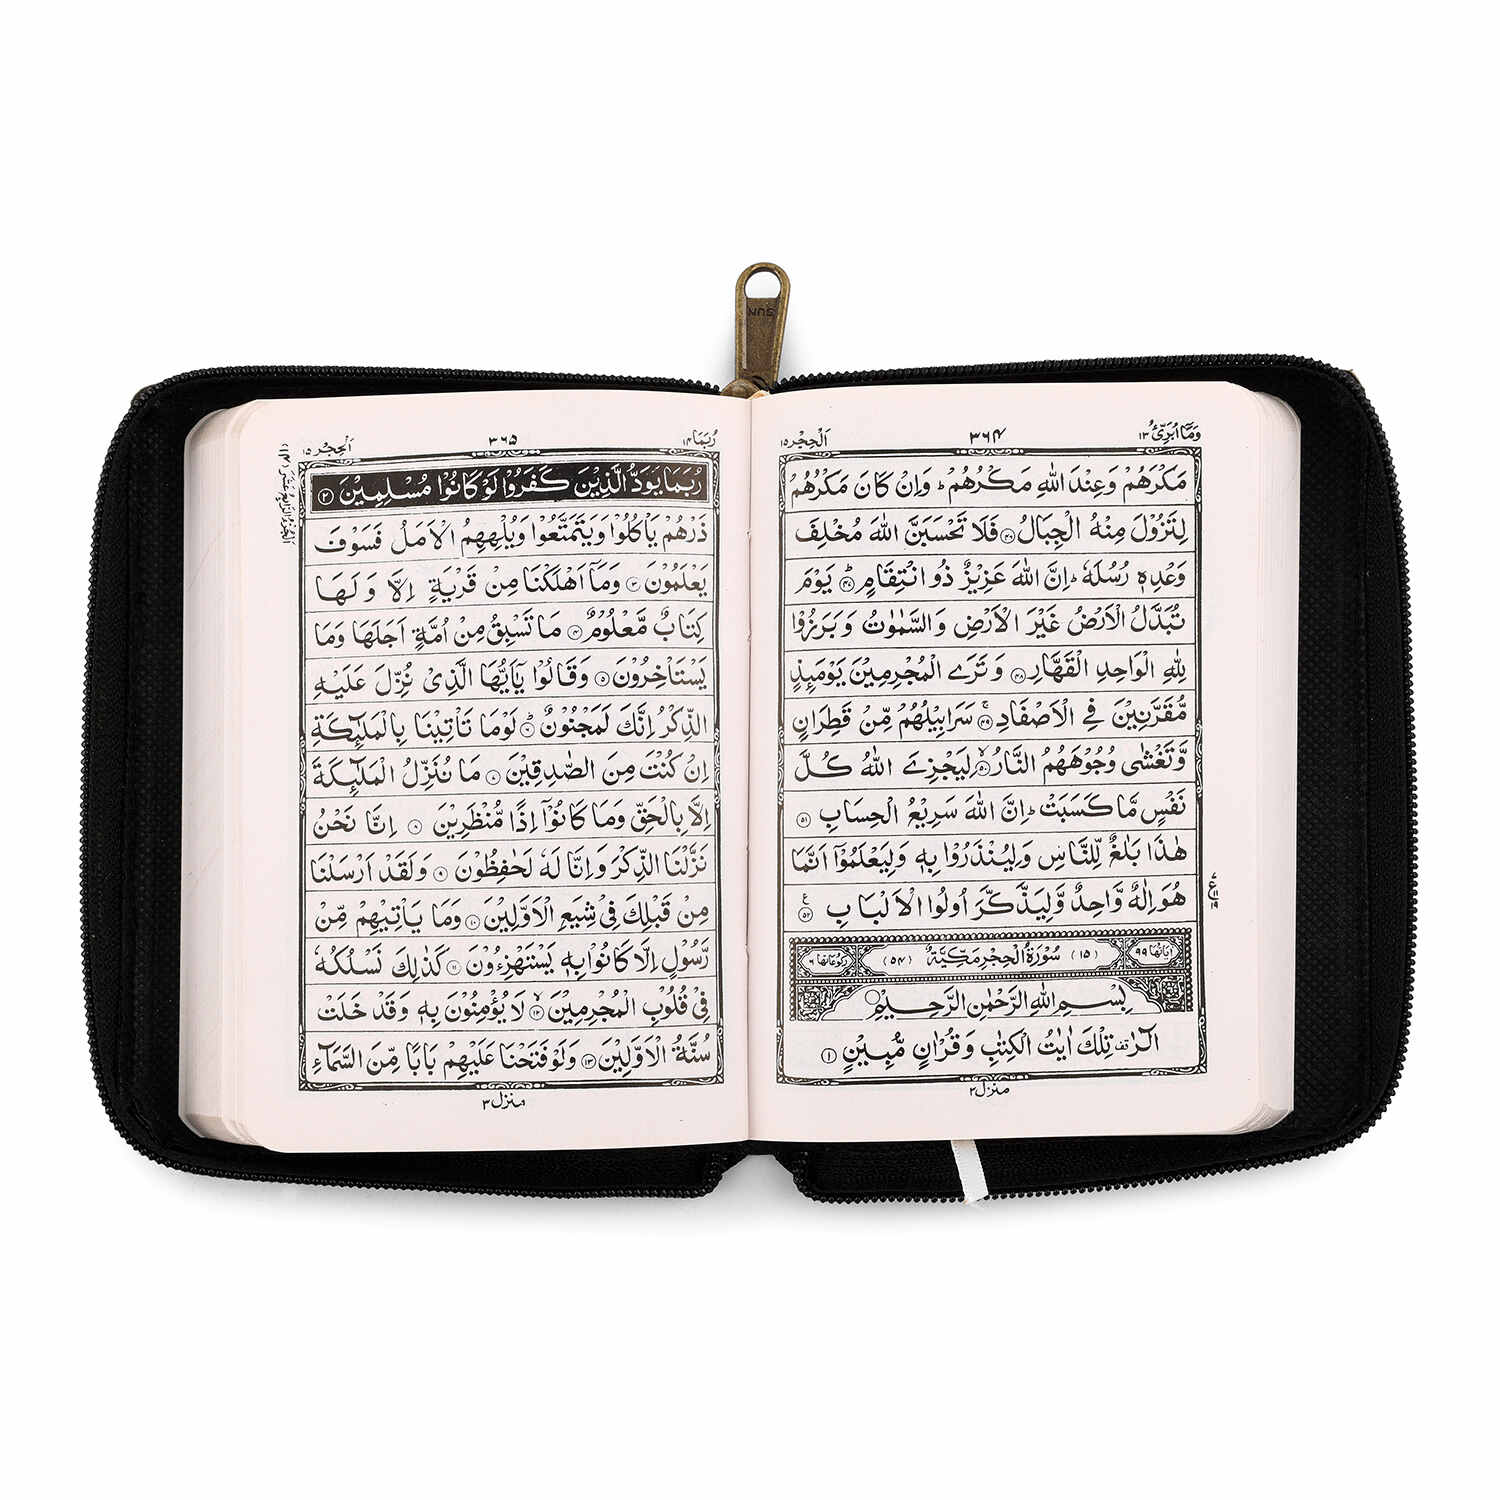 وَمَآ اُبَرِّئُ ۱۳
۳۶۴
اَلْحِجْر ۱۵
مَكْرَهُمْ وَعِنْدَ اللّٰهِ مَكْرُهُمْ ؕ وَاِنْ كَانَ مَكْرُهُمْ
لِتَزُوْلَ مِنْهُ الْجِبَالُ ۴۶ فَلَا تَحْسَبَنَّ اللّٰهَ مُخْلِفَ
وَعْدِهٖ رُسُلَهٗ ؕ اِنَّ اللّٰهَ عَزِيْزٌ ذُو انْتِقَامٍ ؕ ۴۷ يَوْمَ
تُبَدَّلُ الْاَرْضُ غَيْرَ الْاَرْضِ وَالسَّمٰوٰتُ وَبَرَزُوْا
لِلّٰهِ الْوَاحِدِ الْقَهَّارِ ۴۸ وَتَرَى الْمُجْرِمِيْنَ يَوْمَئِذٍ
مُّقَرَّنِيْنَ فِى الْاَصْفَادِ ۚ ۴۹ سَرَابِيْلُهُمْ مِّنْ قَطِرَانٍ
وَّتَغْشٰى وُجُوْهَهُمُ النَّارُ ۙ ۵۰ لِيَجْزِىَ اللّٰهُ كُلَّ
نَفْسٍ مَّا كَسَبَتْ ؕ اِنَّ اللّٰهَ سَرِيْعُ الْحِسَابِ ۵۱
هٰذَا بَلٰغٌ لِّلنَّاسِ وَلِيُنْذَرُوْا بِهٖ وَلِيَعْلَمُوْٓا اَنَّمَا
هُوَ اِلٰهٌ وَّاحِدٌ وَّلِيَذَّكَّرَ اُولُوا الْاَلْبَابِ ۵۲ ع
اٰيَاتُهَا ۹۹ (۱۵) سُوْرَةُ الْحِجْرِ مَكِّيَّةٌ (۵۴) رُكُوْعَاتُهَا ۶
بِسْمِ اللّٰهِ الرَّحْمٰنِ الرَّحِيْمِ
الٓرٰ ۫ تِلْكَ اٰيٰتُ الْكِتٰبِ وَقُرْاٰنٍ مُّبِيْنٍ ۱
منزل ۳
رُبَمَا ۱۴
۳۶۵
اَلْحِجْر ۱۵
رُبَمَا يَوَدُّ الَّذِيْنَ كَفَرُوْا لَوْ كَانُوْا مُسْلِمِيْنَ ۲
ذَرْهُمْ يَاْكُلُوْا وَيَتَمَتَّعُوْا وَيُلْهِهِمُ الْاَمَلُ فَسَوْفَ
يَعْلَمُوْنَ ۳ وَمَآ اَهْلَكْنَا مِنْ قَرْيَةٍ اِلَّا وَلَهَا
كِتَابٌ مَّعْلُوْمٌ ۴ مَا تَسْبِقُ مِنْ اُمَّةٍ اَجَلَهَا وَمَا
يَسْتَاْخِرُوْنَ ۵ وَقَالُوْا يٰٓاَيُّهَا الَّذِىْ نُزِّلَ عَلَيْهِ
الذِّكْرُ اِنَّكَ لَمَجْنُوْنٌ ؕ ۶ لَوْمَا تَاْتِيْنَا بِالْمَلٰٓئِكَةِ
اِنْ كُنْتَ مِنَ الصّٰدِقِيْنَ ۷ مَا نُنَزِّلُ الْمَلٰٓئِكَةَ
اِلَّا بِالْحَقِّ وَمَا كَانُوْٓا اِذًا مُّنْظَرِيْنَ ۸ اِنَّا نَحْنُ
نَزَّلْنَا الذِّكْرَ وَاِنَّا لَهٗ لَحٰفِظُوْنَ ۹ وَلَقَدْ اَرْسَلْنَا
مِنْ قَبْلِكَ فِىْ شِيَعِ الْاَوَّلِيْنَ ۱۰ وَمَا يَاْتِيْهِمْ مِّنْ
رَّسُوْلٍ اِلَّا كَانُوْا بِهٖ يَسْتَهْزِءُوْنَ ۱۱ كَذٰلِكَ نَسْلُكُهٗ
فِىْ قُلُوْبِ الْمُجْرِمِيْنَ ۙ ۱۲ لَا يُؤْمِنُوْنَ بِهٖ وَقَدْ خَلَتْ
سُنَّةُ الْاَوَّلِيْنَ ۱۳ وَلَوْ فَتَحْنَا عَلَيْهِمْ بَابًا مِّنَ السَّمَآءِ
منزل ۳
SUN